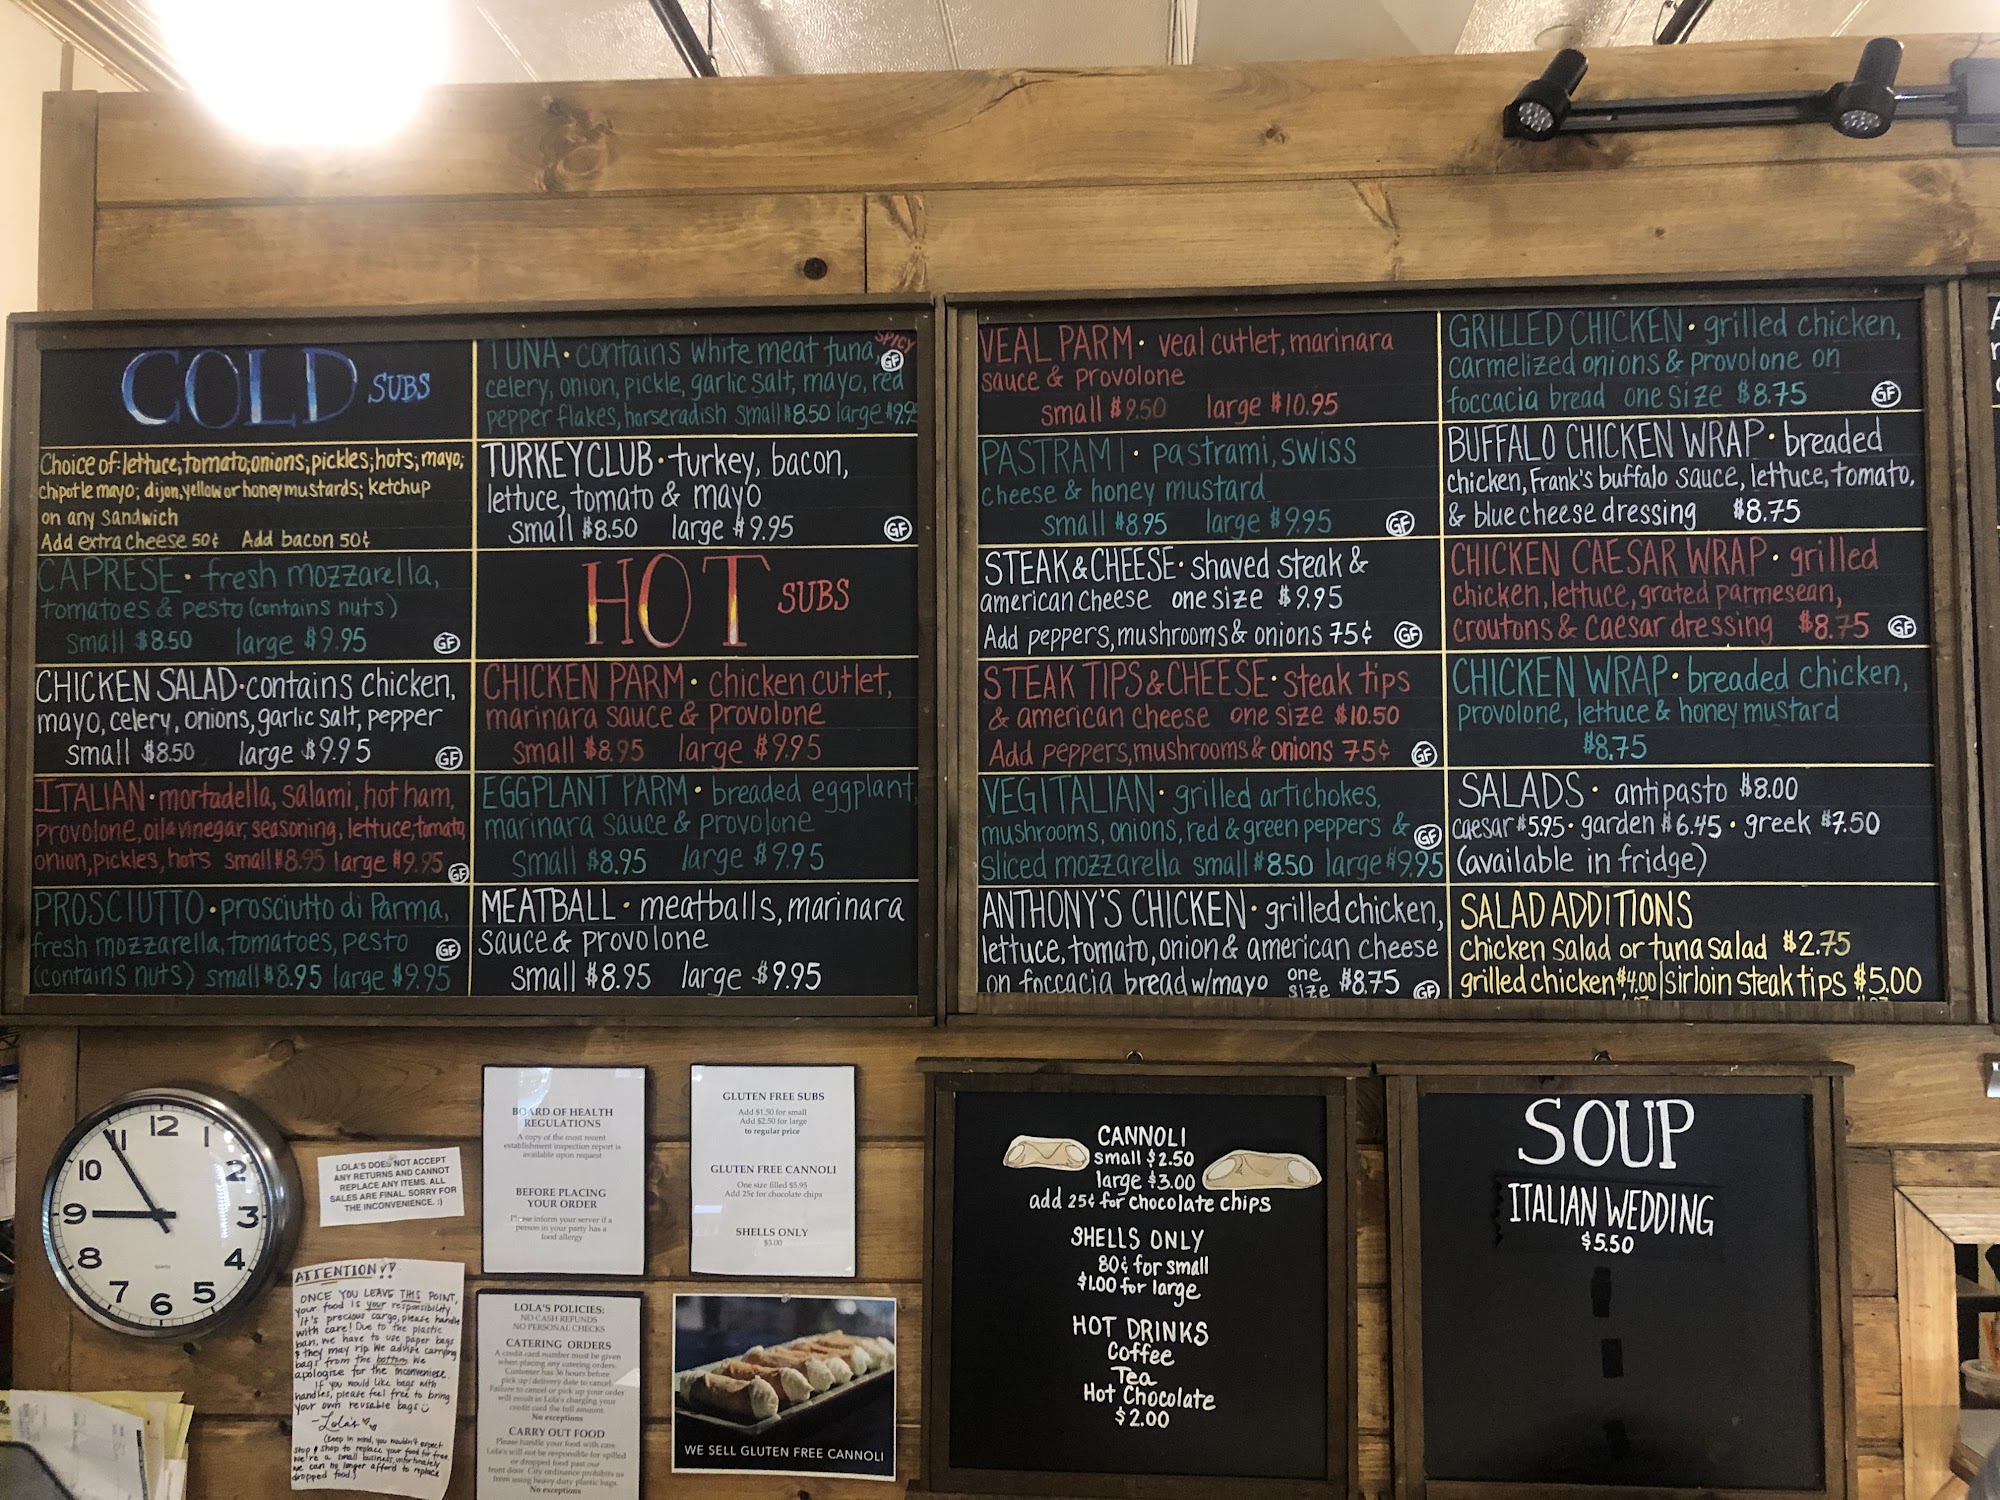 COLD SUBS
Choice of: lettuce; tomato; onions; pickles; hots; mayo;
chipotle mayo; dijon, yellow or honey mustards; ketchup
on any sandwich
Add extra cheese 50¢ Add bacon 50¢
CAPRESE • fresh mozzarella,
tomatoes & pesto (contains nuts)
small $8.50 large $9.95 GF
CHICKEN SALAD • contains chicken,
mayo, celery, onions, garlic salt, pepper
small $8.50 large $9.95 GF
ITALIAN • mortadella, salami, hot ham,
provolone, oil & vinegar, seasoning, lettuce, tomato,
onion, pickles, hots small $8.95 large $9.95 GF
PROSCIUTTO • prosciutto di Parma,
fresh mozzarella, tomatoes, pesto GF
(contains nuts) small $8.95 large $9.95
TUNA • contains white meat tuna, SPICY GF
celery, onion, pickle, garlic salt, mayo, red
pepper flakes, horseradish small $8.50 large $9.95
TURKEY CLUB • turkey, bacon,
lettuce, tomato & mayo
small $8.50 large $9.95 GF
HOT SUBS
CHICKEN PARM • chicken cutlet,
marinara sauce & provolone
small $8.95 large $9.95
EGGPLANT PARM • breaded eggplant,
marinara sauce & provolone
small $8.95 large $9.95
MEATBALL • meatballs, marinara
sauce & provolone
small $8.95 large $9.95
VEAL PARM • veal cutlet, marinara
sauce & provolone
small $9.50 large $10.95
PASTRAMI • pastrami, swiss
cheese & honey mustard
small $8.95 large $9.95 GF
STEAK & CHEESE • shaved steak &
american cheese one size $9.95
Add peppers, mushrooms & onions 75¢ GF
STEAK TIPS & CHEESE • steak tips
& american cheese one size $10.50
Add peppers, mushrooms & onions 75¢ GF
VEGITALIAN • grilled artichokes,
mushrooms, onions, red & green peppers & GF
sliced mozzarella small $8.50 large $9.95
ANTHONY'S CHICKEN • grilled chicken,
lettuce, tomato, onion & american cheese
on foccacia bread w/mayo one size $8.75 GF
GRILLED CHICKEN • grilled chicken,
carmelized onions & provolone on
foccacia bread one size $8.75 GF
BUFFALO CHICKEN WRAP • breaded
chicken, Frank's buffalo sauce, lettuce, tomato,
& blue cheese dressing $8.75
CHICKEN CAESAR WRAP • grilled
chicken, lettuce, grated parmesean,
croutons & caesar dressing $8.75 GF
CHICKEN WRAP • breaded chicken,
provolone, lettuce & honey mustard
$8.75
SALADS • antipasto $8.00
caesar $5.95 • garden $6.45 • greek $7.50
(available in fridge)
SALAD ADDITIONS
chicken salad or tuna salad $2.75
grilled chicken $4.00 | sirloin steak tips $5.00
12
1
2
3
4
5
6
7
8
9
10
11
QUARTZ
LOLA'S DOES NOT ACCEPT
ANY RETURNS AND CANNOT
REPLACE ANY ITEMS. ALL
SALES ARE FINAL. SORRY FOR
THE INCONVENIENCE. :)
ATTENTION!!
ONCE YOU LEAVE THIS POINT,
your food is your responsibility.
It's precious cargo, please handle
with care! Due to the plastic
ban, we have to use paper bags
& they may rip. We advise carrying
bags from the bottom. We
apologize for the inconvenience.
If you would like bags with
handles, please feel free to bring
your own reusable bags
- Lola's
(keep in mind, you wouldn't expect
stop & shop to replace your food for free.
We're a small business, unfortunately
we can no longer afford to replace
dropped food)
BOARD OF HEALTH
REGULATIONS
A copy of the most recent
establishment inspection report is
available upon request
BEFORE PLACING
YOUR ORDER
Please inform your server if a
person in your party has a
food allergy
GLUTEN FREE SUBS
Add $1.50 for small
Add $2.50 for large
to regular price
GLUTEN FREE CANNOLI
One size filled $5.95
Add 25¢ for chocolate chips
SHELLS ONLY
$3.00
LOLA'S POLICIES:
NO CASH REFUNDS
NO PERSONAL CHECKS
CATERING ORDERS
A credit card number must be given
when placing any catering orders.
Customer has 36 hours before
pick up/delivery date to cancel.
Failure to cancel or pick up your order
will result in Lola's charging your
credit card the full amount.
No exceptions
CARRY OUT FOOD
Please handle your food with care.
Lola's will not be responsible for spilled
or dropped food past our
front door. City ordinance prohibits us
from using heavy duty plastic bags.
No exceptions
WE SELL GLUTEN FREE CANNOLI
CANNOLI
small $2.50
large $3.00
add 25¢ for chocolate chips
SHELLS ONLY
80¢ for small
$1.00 for large
HOT DRINKS
Coffee
Tea
Hot Chocolate
$2.00
SOUP
ITALIAN WEDDING
$5.50